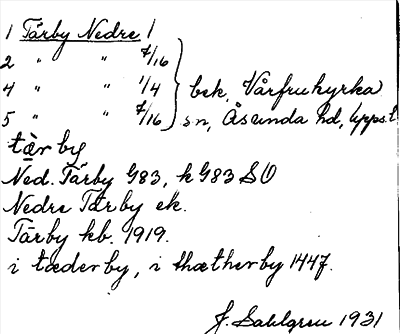 1 Tärby Nedre 1
2 " " 7/16
4 " " 1/4 } bek. Vårfrukyrka
5 " " 7/16 sn, Åsunda hd, Upps.l.
tàr by
Ned. Tärby G83, k G83 SO
Nedre Tärby ek.
Tärby kb. 1919.
i tæderby, i thætherby 1447.
J. Sahlgren 1931